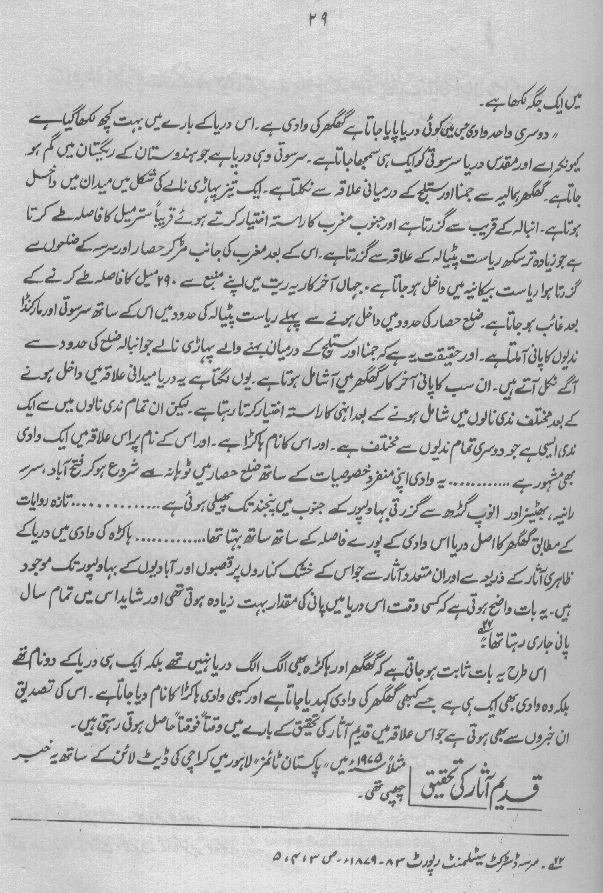 ۲۹
میں ایک جگہ لکھا ہے۔
"دوسری واحد وادی جس میں کوئی دریا پایا جاتا ہے گھگھر کی وادی ہے۔ اس دریا کے بارے میں بہت کچھ لکھا گیا ہے
کیونکہ اسے اور مقدس دریا سرسوتی کو ایک ہی سمجھا جاتا ہے۔ سرسوتی وہی دریا ہے جو ہندوستان کے ریگستان میں گم ہو
جاتا ہے۔ گھگھر ہمالیہ سے جمنا اور ستلج کے درمیانی علاقہ سے نکلتا ہے۔ ایک تیز پہاڑی نالے کی شکل میں میدان میں داخل
ہوتا ہے۔ انبالہ کے قریب سے گزرتا ہے اور جنوب مغرب کا راستہ اختیار کرتے ہوئے قریباً ستر میل کا فاصلہ طے کرتا
ہے جو زیادہ تر سکھ ریاست پٹیالہ کے علاقہ سے گزرتا ہے۔ اس کے بعد مغرب کی جانب مڑ کر حصار اور سرسہ کے ضلعوں سے
گزرتا ہوا ریاست بیکانیر میں داخل ہو جاتا ہے۔ جہاں آخر کار یہ ریت میں اپنے منبع سے ۲۹۰ میل کا فاصلہ طے کرنے کے
بعد غائب ہو جاتا ہے۔ ضلع حصار کی حدود میں داخل ہونے سے پہلے ریاست پٹیالہ کی حدود میں اس کے ساتھ سرسوتی اور مارکنڈا
ندیوں کا پانی آ ملتا ہے۔ اور حقیقت یہ ہے کہ جمنا اور ستلج کے درمیان بہنے والے پہاڑی نالے جو انبالہ ضلع کی حدود سے
آگے نکل آتے ہیں۔ ان سب کا پانی آخر کار گھگھر میں آ شامل ہوتا ہے۔ یوں لگتا ہے یہ دریا میدانی علاقہ میں داخل ہونے
کے بعد مختلف ندی نالوں میں شامل ہونے کے بعد انہی کا راستہ اختیار کرتا رہتا ہے۔ لیکن ان تمام ندی نالوں میں سے ایک
ندی ایسی ہے جو دوسری تمام ندیوں سے مختلف ہے۔ اور اس کا نام ہاکڑا ہے۔ اور اس کے نام پر اس علاقہ میں ایک وادی
بھی مشہور ہے ........... یہ وادی اپنی منفرد خصوصیات کے ساتھ ضلع حصار میں ٹوہانہ سے شروع ہو کر فتح آباد، سرسہ
رانیہ، بھٹنیز اور انوپ گڑھ سے گزرتی بہاولپور کے جنوب میں پنجند تک پھیلی ہوئی ہے ........... تازہ روایات
کے مطابق گھگھر کا اصل دریا اس وادی کے پورے فاصلہ کے ساتھ ساتھ بہتا تھا ........... ہاکڑہ کی وادی میں دریا کے
ظاہری آثار کے ذریعہ سے اور ان متعدد آثار سے جو اس کے خشک کناروں پر قصبوں اور آبادیوں کے بہاولپور تک موجود
ہیں۔ یہ بات واضح ہوتی ہے کہ کسی وقت اس دریا میں پانی کی مقدار بہت زیادہ ہوتی تھی اور شاید اس میں تمام سال
پانی جاری رہتا تھا۲۲؎"
اس طرح یہ بات ثابت ہو جاتی ہے کہ گھگھر اور ہاکڑہ بھی الگ الگ دریا نہیں تھے بلکہ ایک ہی دریا کے دو نام تھے
بلکہ وہ وادی بھی ایک ہی ہے جسے کبھی گھگھر کی وادی کہہ دیا جاتا ہے اور کبھی وادی ہاکڑا کا نام دیا جاتا ہے۔ اس کی تصدیق
ان خبروں سے بھی ہوتی ہے جو اس علاقہ میں قدیم آثار کی تحقیق کے بارے میں وقتاً فوقتاً حاصل ہوتی رہتی ہیں۔
قدیم آثار کی تحقیق مثلاً ۱۹۷۵ء میں "پاکستان ٹائمز" لاہور میں کراچی کی ڈیٹ لائن کے ساتھ یہ خبر
چھپی تھی۔
۲۲؎۔ سرسہ ڈسٹرکٹ سیٹلمنٹ رپورٹ ۸۳-۱۸۷۹ء۔ ص ۳، ۴، ۵